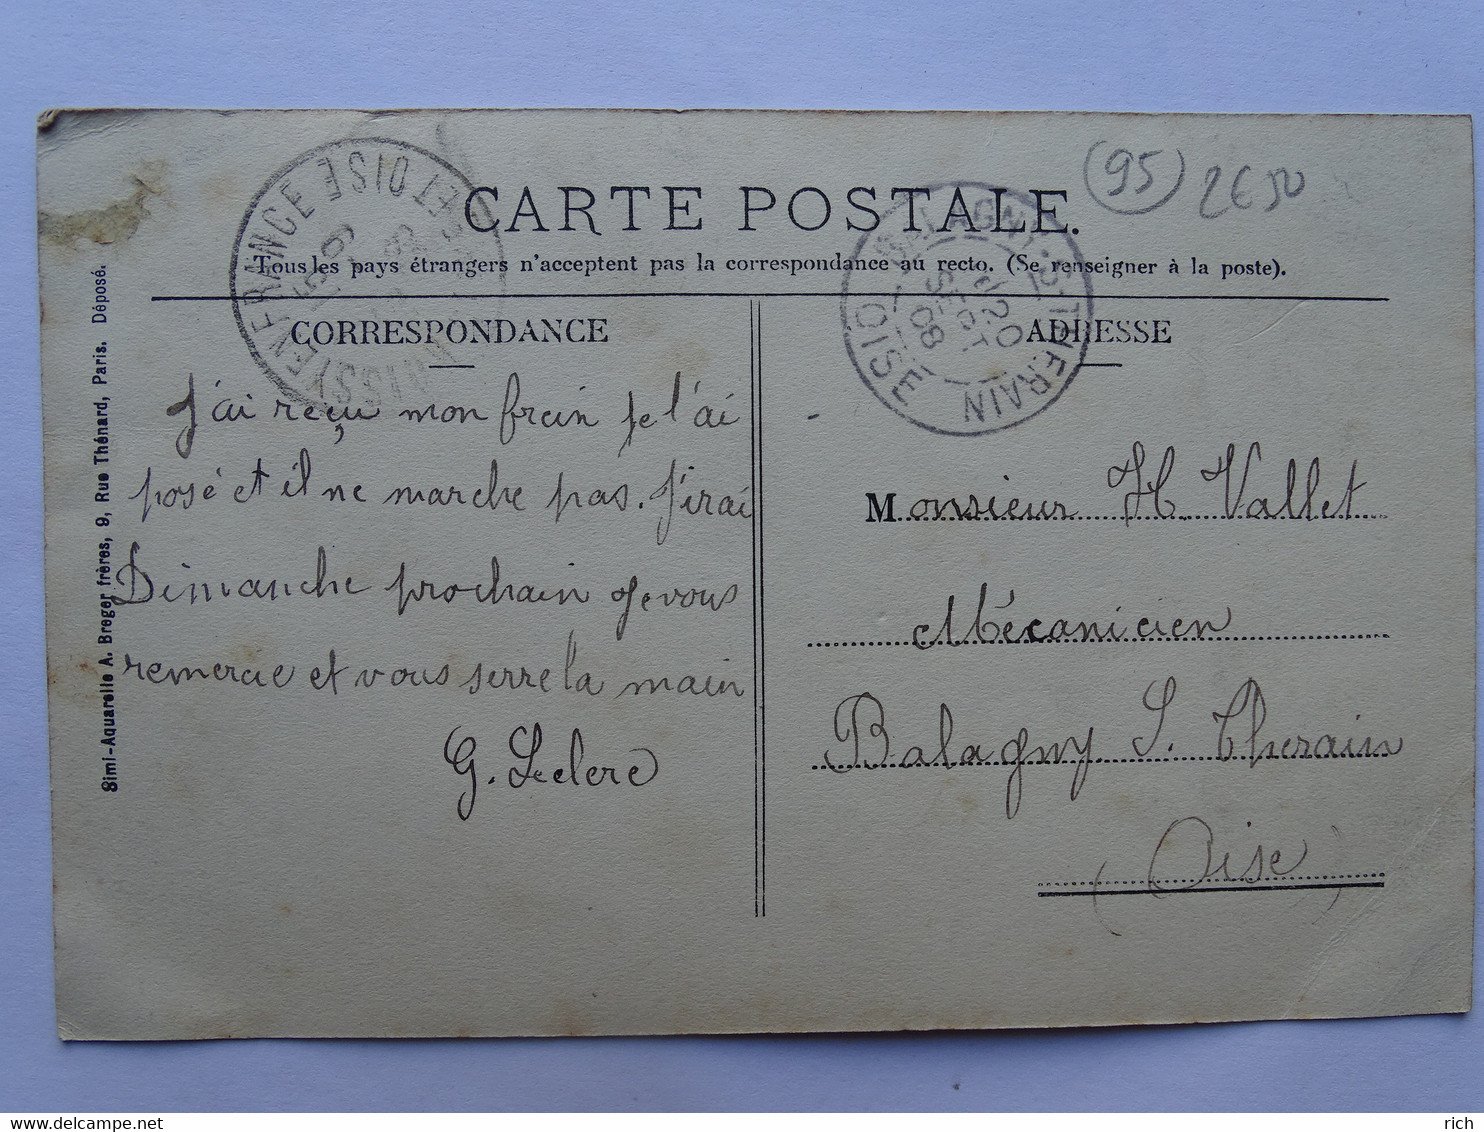 (95) 2€50
CARTE POSTALE.
Tous les pays étrangers n'acceptent pas la correspondance au recto. (Se renseigner à la poste).
CORRESPONDANCE
J'ai reçu mon frein je l'ai
posé et il ne marche pas. J'irai
Dimanche prochain Je vous
remercie et vous serre la main
G. Leclerc
ADRESSE
Monsieur H. Vallet
Mécanicien
Balagny S. Therain
(Oise)
Simi-Aquarelle A. Breger frères, 9, Rue Thénard, Paris. Déposé.
EN FRANCE
ET OISE
BALAGNY-S-THERAIN
20
SEPT
08
OISE
delcampe.net
rich